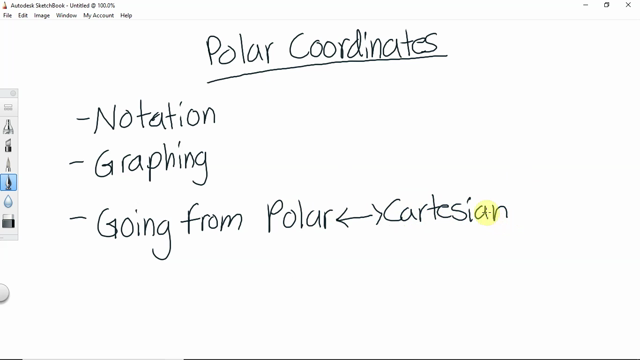 Autodesk SketchBook - Untitled @ 100.0%
File Edit Image Window My Account Help
Polar Coordinates
- Notation
- Graphing
- Going from Polar <-> Cartesian